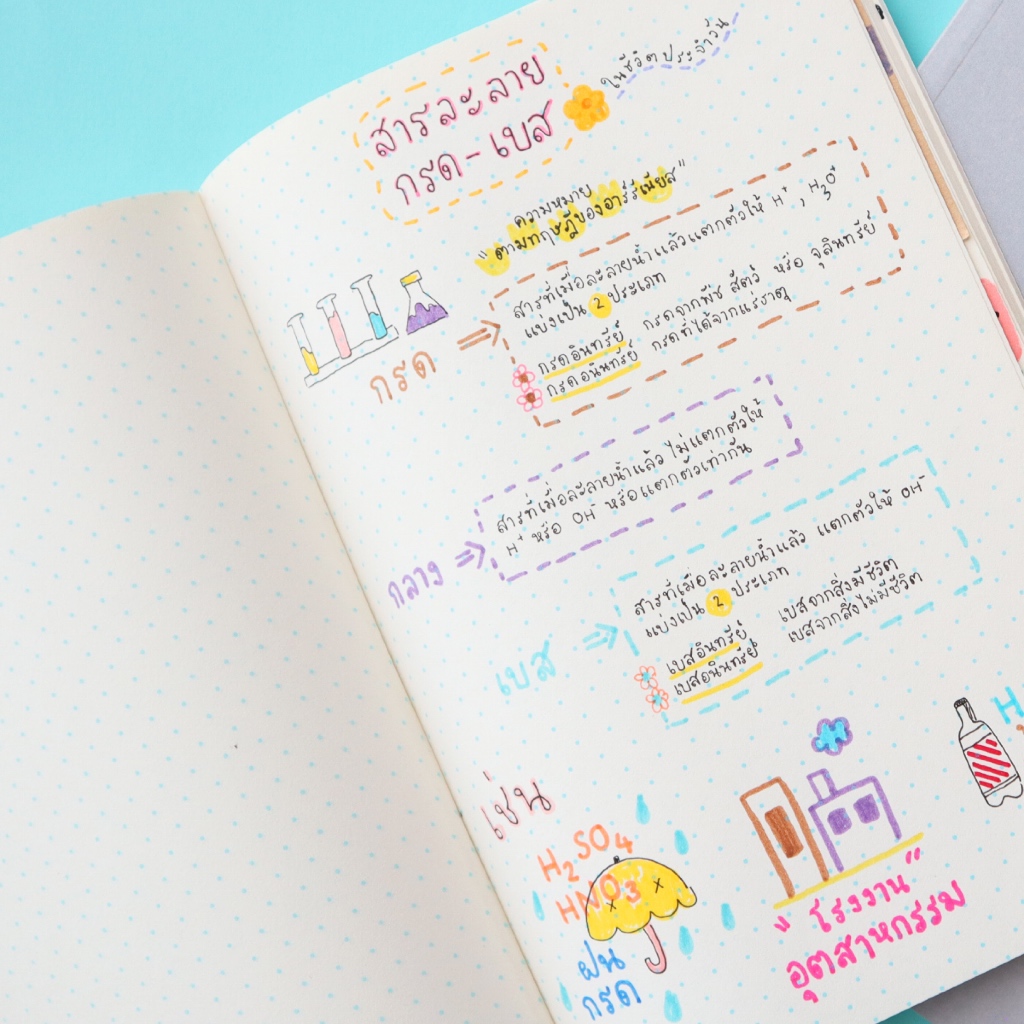 สารละลาย
กรด - เบส
ในชีวิตประจำวัน
ความหมาย
"ตามทฤษฎีของอาร์รีเนียส"
กรด ⇒
สารที่เมื่อละลายน้ำแล้วแตกตัวให้ H⁺, H₃O⁺
แบ่งเป็น 2 ประเภท
กรดอินทรีย์ กรดจากพืช สัตว์ หรือ จุลินทรีย์
กรดอนินทรีย์ กรดที่ได้จากแร่ธาตุ
กลาง ⇒
สารที่เมื่อละลายน้ำแล้ว ไม่แตกตัวให้
H⁺ หรือ OH⁻ หรือแตกตัวเท่ากัน
เบส ⇒
สารที่เมื่อละลายน้ำแล้ว แตกตัวให้ OH⁻
แบ่งเป็น 2 ประเภท
เบสอินทรีย์ เบสจากสิ่งมีชีวิต
เบสอนินทรีย์ เบสจากสิ่งไม่มีชีวิต
เช่น
H₂SO₄
HNO₃
ฝน
กรด
"โรงงาน"
อุตสาหกรรม
H